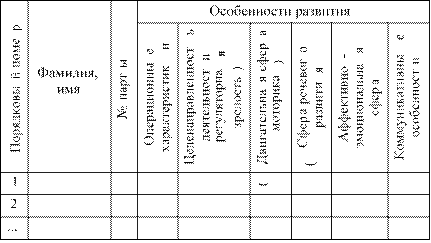 Порядковы й номе р
Фамилия,
имя
№ парт ы
Особенности развития
Операционны е
характеристик и
Целенаправленност ь
деятельност и
регуляторна я
зрелость )
Двигательна я сфер а
моторика )
(
Сфера речевог о
развити я
(
Аффективно -
эмоциональна я
сфер а
Коммуникативны е
особенност и
1
2
...